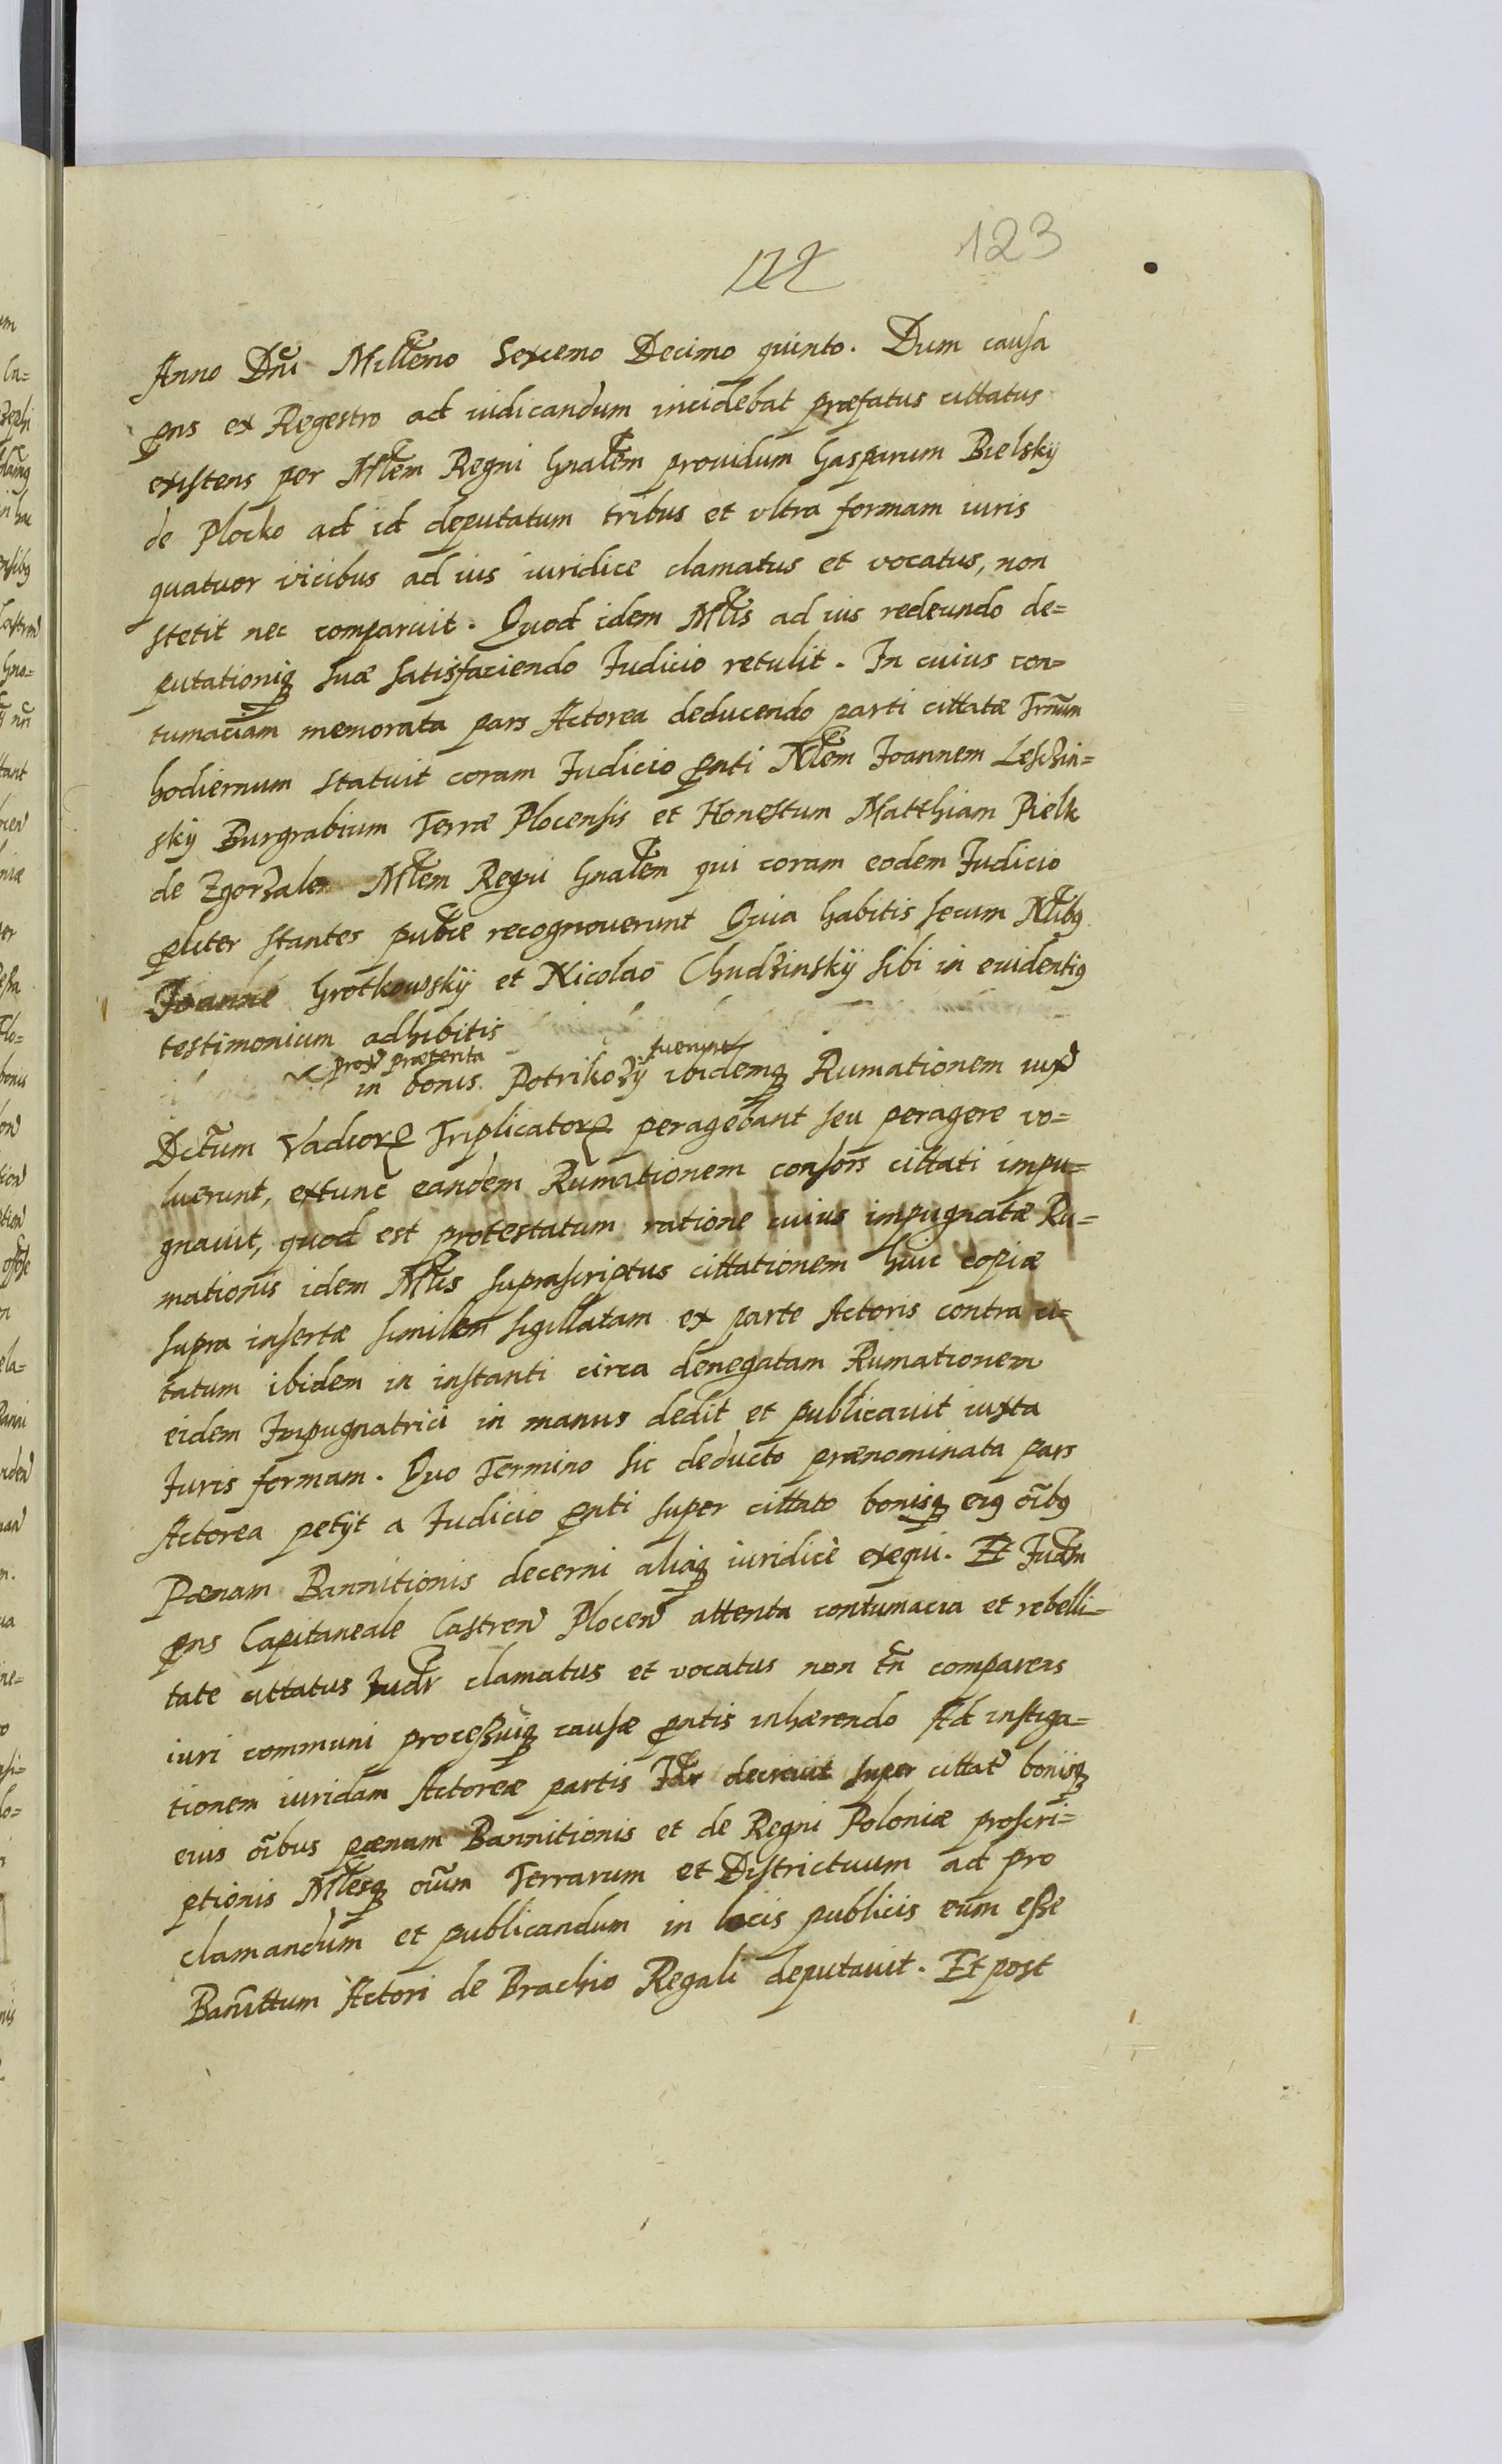 123
Anno Dni Millemo Sexcemo Decimo quinto. Dum causa
pns ex Regestro ad iudicandum incidebat præfatus cittatus
existens per Mlem Regni Gnalem prouidum Gasparum Bielsky
de Plocko ad id deputatum tribus et vltra formam iuris
quatuor vicibus ad ius iuridice clamatus et vocatus, non
stetit nec comparuit. Quod idem Mlis ad ius redeundo de=
putationiq suæ satisfaciendo Iudicio retulit. In cuius con=
tumaciam memorata pars Actorea deducendo parti cittatæ Trnum
hodiernum statuit coram Iudicio pnti Nlem Joannem Leszczin=
sky Burgrabium Terræ Plocensis et Honestum Matthiam Pielk
de Zgorzale Mlem Regni Gnalem qui coram eodem Iudicio
pliter stantes publce recognouerunt Quia habitis secum Nlibq
Joanne Grotkowsky et Nicolao Chudzinsky sibi in euidentiq
testimonium adhibitis
prox præterita fuerunt
in bonis Potrikozy ibidemq Rumationem iux
Dctum Vadior Triplicator peragebant seu peragere vo=
luerunt, extunc eandem Rumationem consors cittati impu=
gnauit, quod est protestatum ratione cuius impugnatæ Ru=
mationis idem Mlis suprascriptus cittationem huic copiæ
supra insertæ similem sigillatam ex parte Actoris contra ci=
tatum ibidem in instanti circa denegatam Rumationem
eidem Impugnatrici in manus dedit et publicauit iuxta
Iuris formam. Quo Termino sic deducto prænominata pars
Actorea petijt a Iudicio pnti super cittato bonisq eiq oibq
Pænam Bannitionis decerni aliaq iuridicè exequi. Et Iudm
pns Capitaneale Castren Plocen attenta contumacia et rebelli=
tate cittatus Iudr clamatus et vocatus non tn comparens
iuri communi processuiq causæ pntis inhærendo Ad instiga=
tionem iuridam Actoreæ partis Idr decreuit super cittat bonisq
eius oibus pænam Bannitionis et de Regni Poloniæ proscri=
ptionis Mlesq oium Terrarum et Districtuum ad pro
clamandum et publicandum in locis publicis eum esse
Banittum Actori de Brachio Regali deputauit. Et post